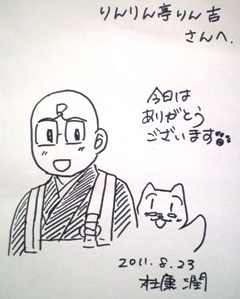 りんりん亭りん吉
さんへ.
今日は
ありがとう
ございます
2011.8.23
杜康 潤